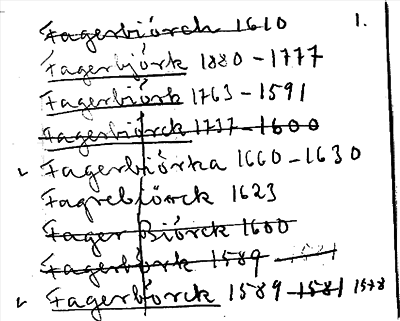 Fagerbiörck 1610 1.
Fagerbjörk 1880-1777
Fagerbiörk 1763-1591
Fagerbiörck 1737-1600
Fagerbiörka 1660-1630
Fagrebiörck 1623
Fager Biörck 1600
Fagerbörk 1589 1581
Fagerbörck 1589-1581 1578